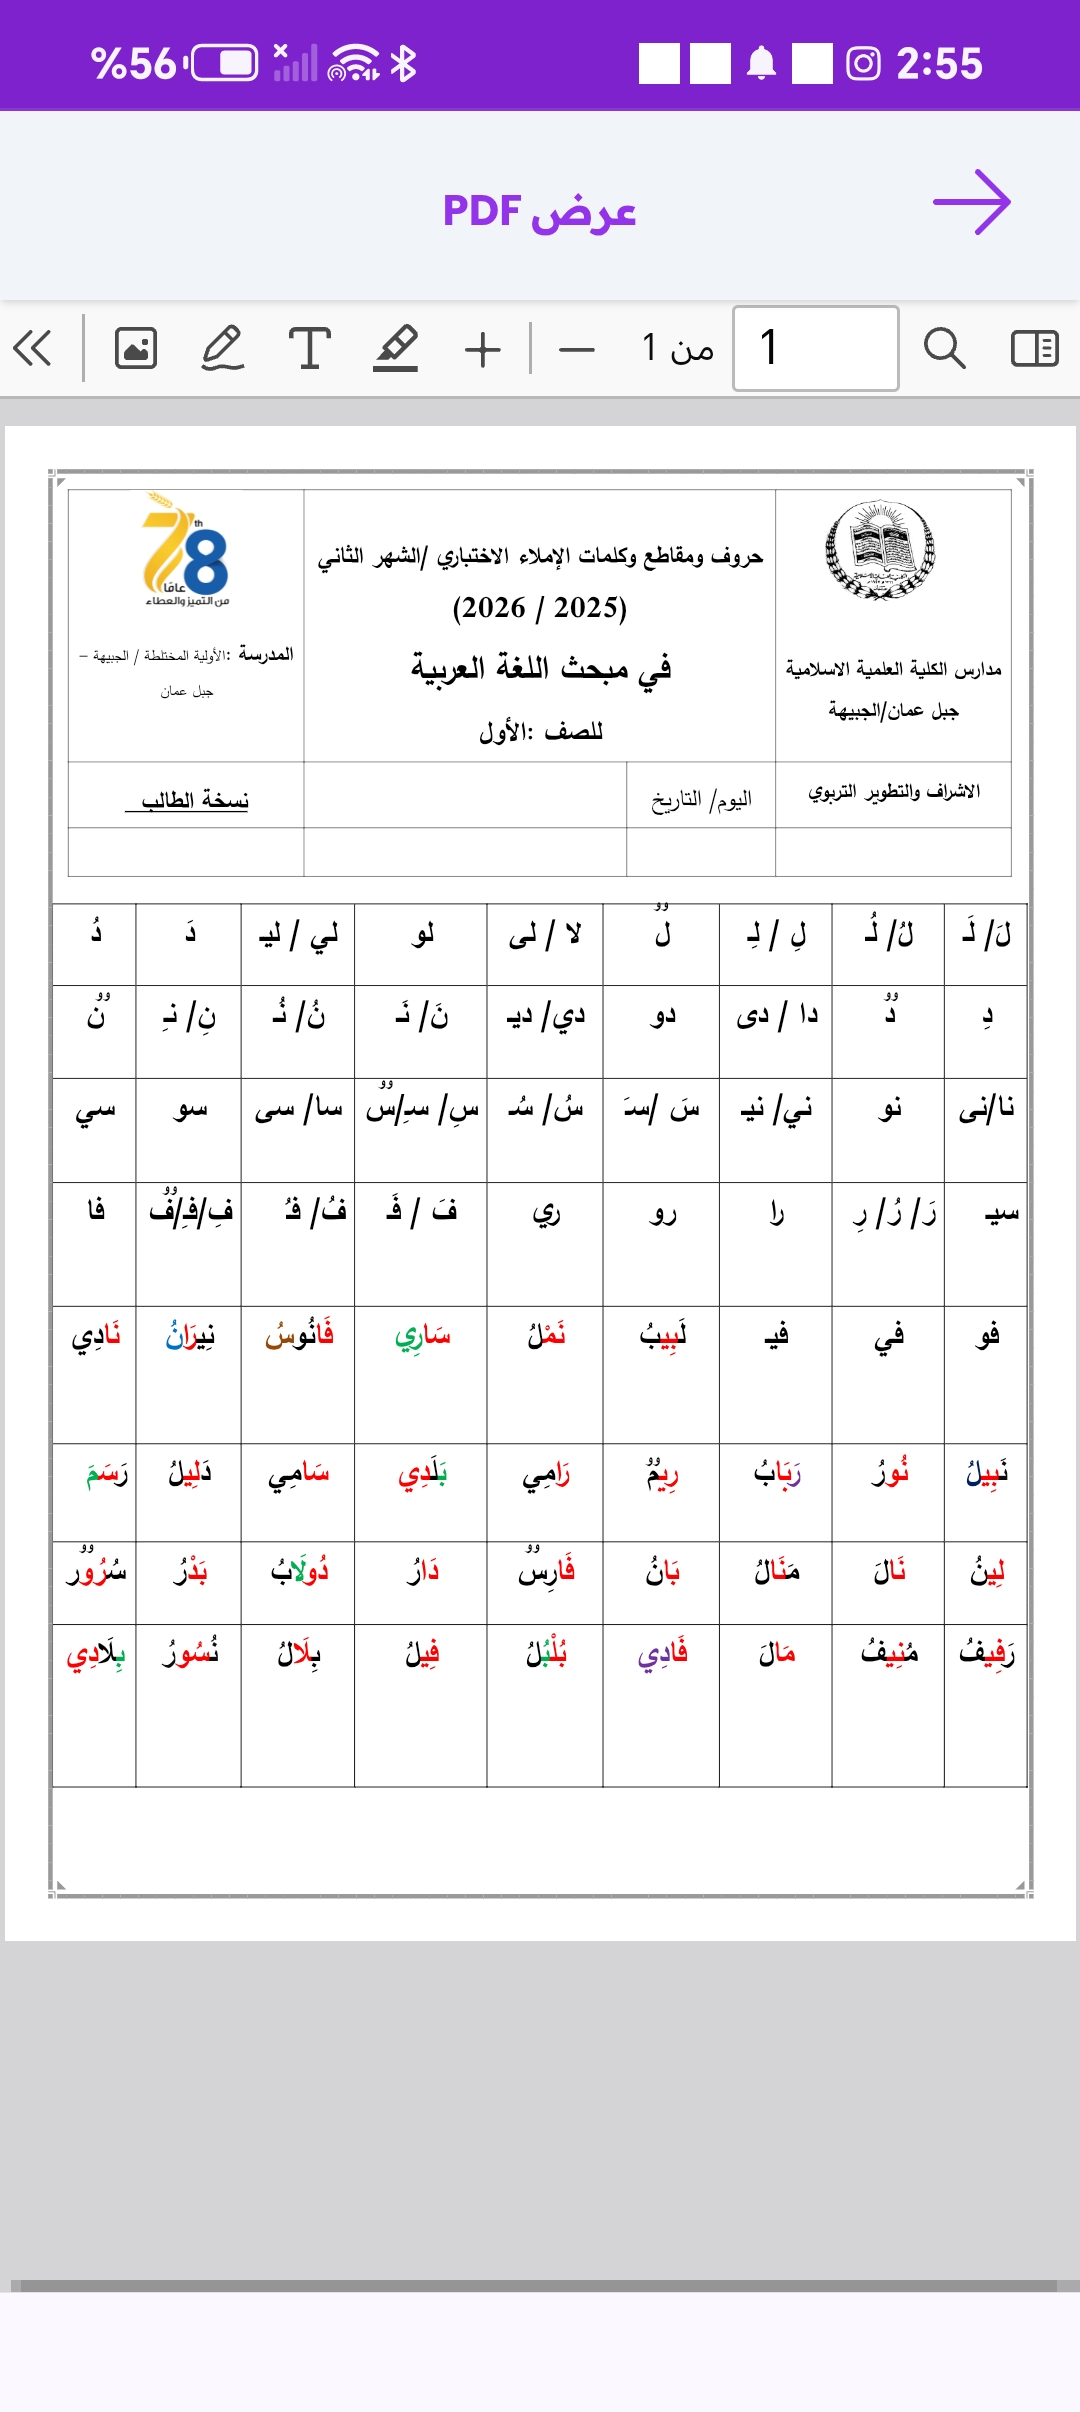 %56 2:55
عرض PDF
1 من 1
78th
عامًا
من التميز والعطاء
المدرسة :الأولية المختلطة / الجبيهة –
جبل عمان
حروف ومقاطع وكلمات الإملاء الاختباري /الشهر الثاني
(2025 / 2026)
في مبحث اللغة العربية
للصف :الأول
مدارس الكلية العلمية الاسلامية
جبل عمان/الجبيهة
الاشراف والتطوير التربوي
اليوم/ التاريخ
نسخة الطالب
لَ/ لَـ لُ/ لُـ لِ / لِـ لٌ لا / لى لو لي / ليـ دَ دُ
دِ دٌ دا / دى دو دي/ ديـ نَ/ نَـ نُ/ نُـ نِ/ نِـ نٌ
نا/نى نو ني/ نيـ سَ /سَـ سُ/ سُـ سِ/ سِـ/سٌ سا/ سى سو سي
سيـ رَ/ رُ/ رِ را رو ري فَ / فَـ فُ/ فُـ فِ/فِـ/فٌ فا
فو في فيـ لَبِيبُ نَمْلُ سَارِي فَانُوسُ نِيرَانُ نَادِي
نَبِيلُ نُورُ رَبَابُ رِيمٌ رَامِي بَلَدِي سَامِي دَلِيلُ رَسَمَ
لِينُ نَالَ مَنَالُ بَانُ فَارِسٌ دَارُ دُولَابُ بَدْرُ سُرُورٌ
رَفِيفُ مُنِيفُ مَالَ فَادِي بُلْبُلُ فِيلُ بِلَالُ نُسُورُ بِلَادِي